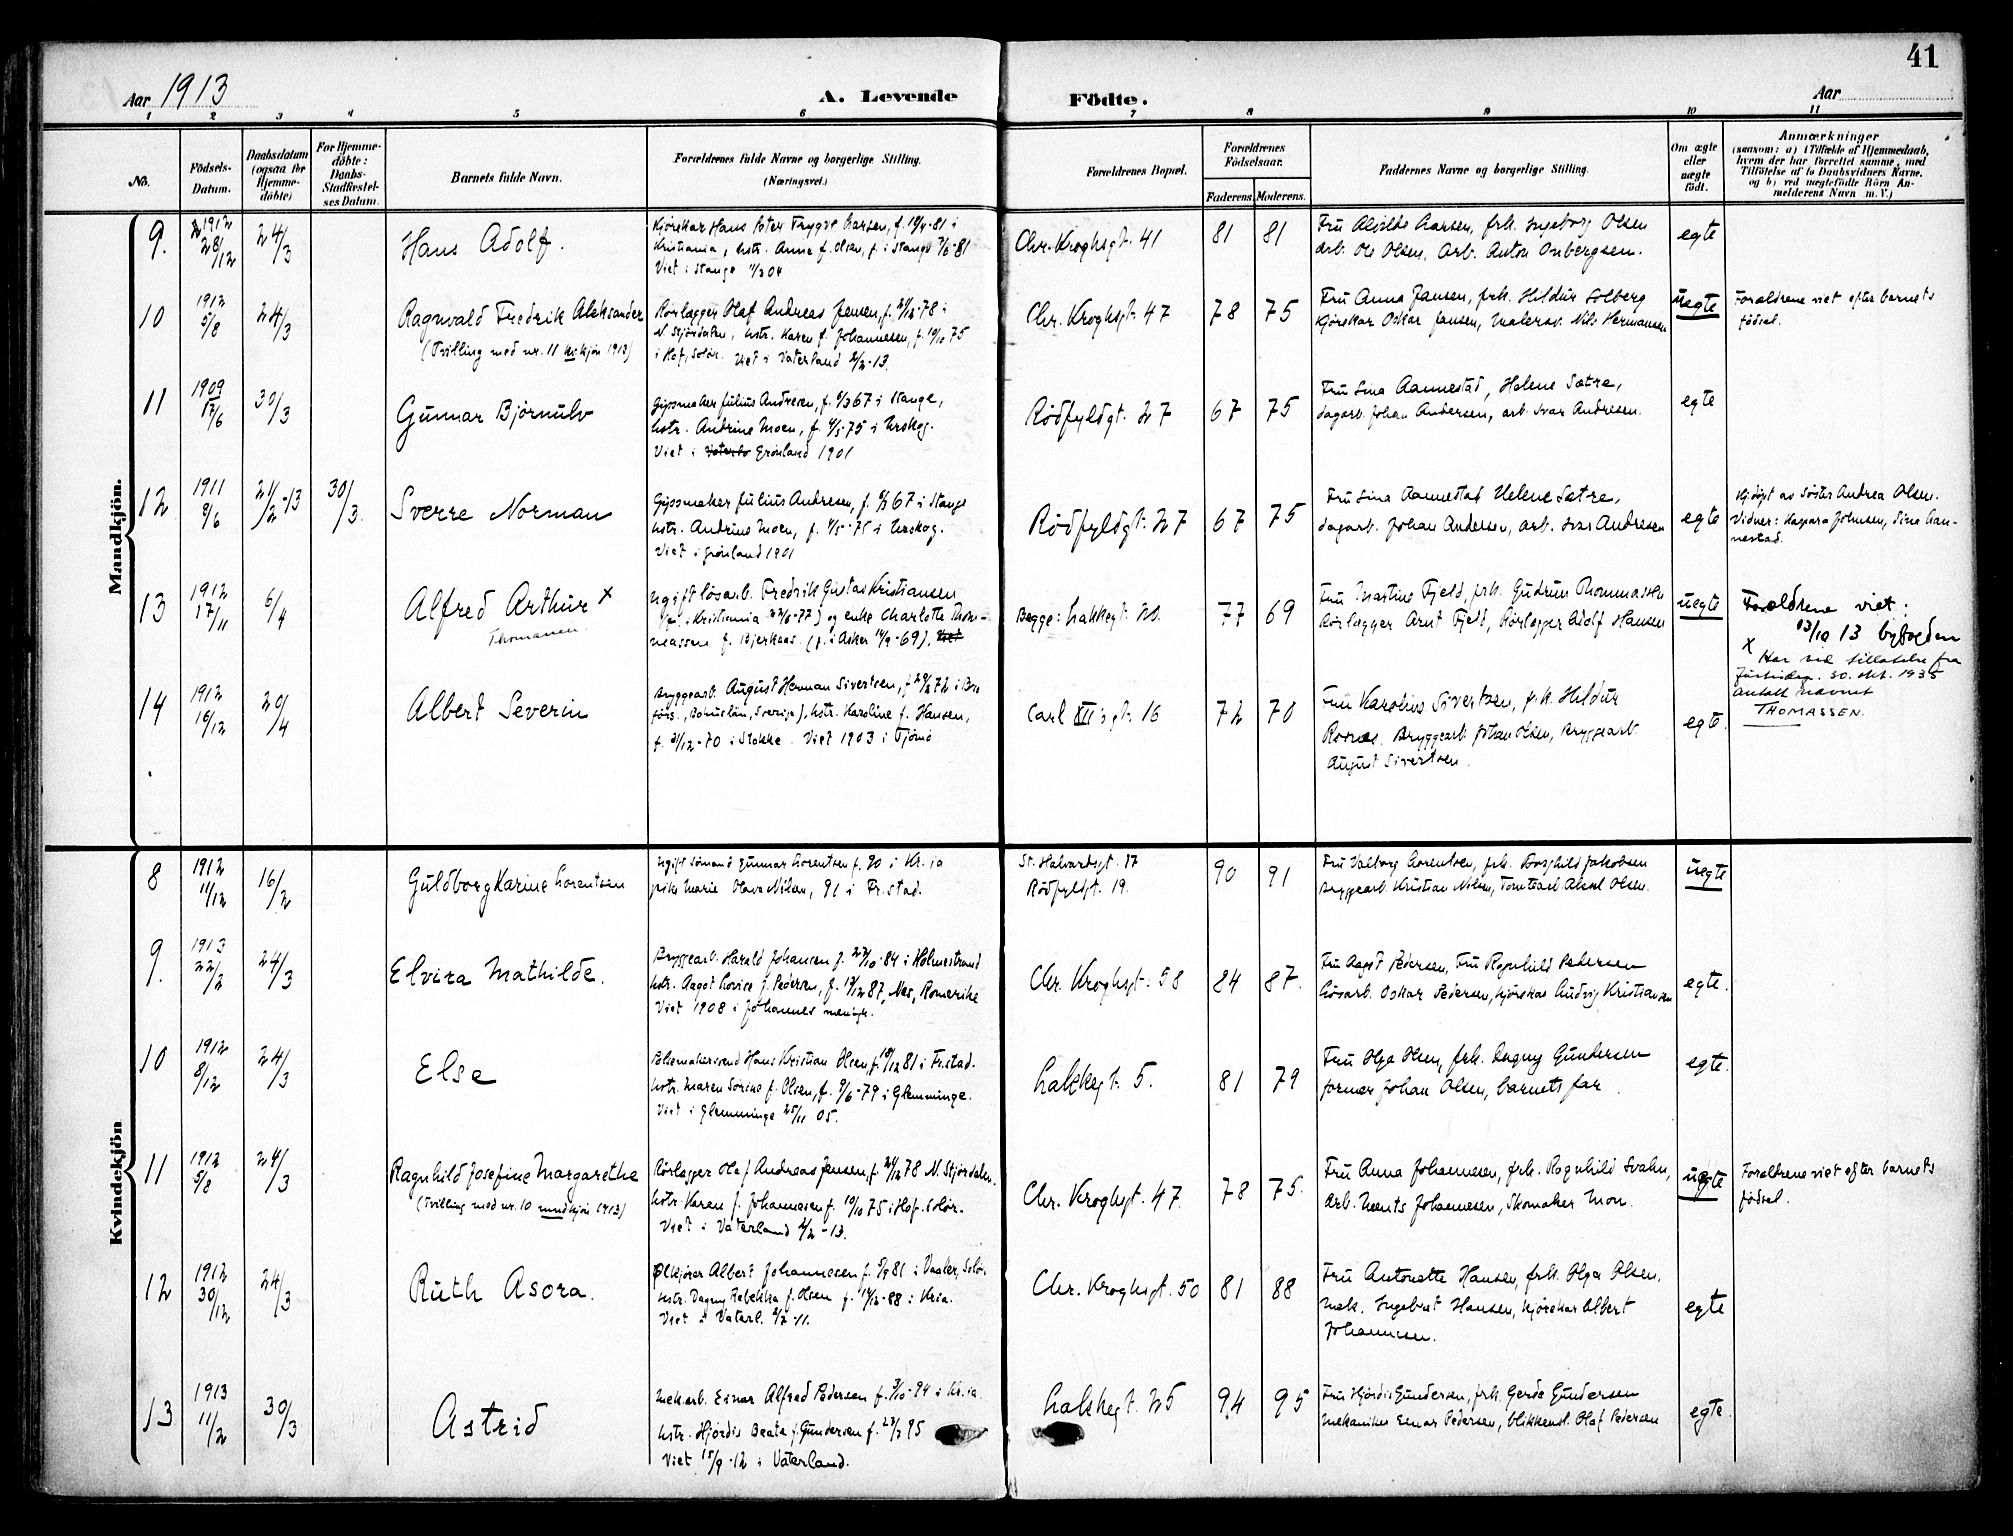 41
Aar 1913
A. Levende
Födte.
Aar
1 2 3 4 5 6 7 8 9 10 11
No.
Födsels-
Datum.
Daabsdatum
(ogsaa for
Hjemme-
döbte)
For Hjemme-
döbte:
Daabs-
Stadfæstel-
ses Datum.
Barnets fulde Navn.
Forældrenes fulde Navne og borgerlige Stilling.
(Næringsvei.)
Forældrenes Bopæl.
Forældrenes
Födselsaar.
Faderens. Moderens.
Faddernes Navne og borgerlige Stilling.
Om ægte
eller
uægte
födt.
Anmærkninger
(saasom: a) i Tilfælde af Hjemmedaab,
hvem der har forrettet samme, med
Tilföielse af to Daabsvidners Navne,
og b) ved uægtefödte Börn An-
melderens Navn m. V.)
Mandkjön.
9. 1912 28/12 24/3
Hans Adolf.
Kjørskar Hans Peter Trygve Larsen, f. 19/4-81 i
Kristiania, hstr. Anna f. Olsen, f. i Stange 7/6-81
Viet i Stange 04
Chr. Kroghsgt. 41 81 81
Fru Alvilde Larsen, frk. Ingeborg Olsen
Arb. Ole Olsen, Arb. Anton Onbergsen.
egte
10 1912 5/8 24/3
Ragnvald Fredrik Aleksander
(Tvilling med nr. 11 kvkjøn 1913)
Rørlægger Olaf Andreas Jensen, f. 21/12-78 i
N. Stjørdalen, hstr. Karen f. Johannesen, f. 19/10 75
i Hof, Solør. Viet i Vaterland 2/2-13.
Chr. Kroghsgt. 47 78 75
Fru Anna Jansen, frk. Hildur Solberg
Kjørskar Oskar Jansen, Malersv. Nils Hermansen
uegte
Forældrene viet efter barnets
fødsel.
11 1909 17/6 30/3
Gunnar Bjørnulv
Gipsmaker Julius Andresen, f. 9/3 67 i Stange,
hstr. Andrine Moen, f. 4/5-75 i Urskog.
Viet i Grønland 1901
Rødfyldgt. 27 67 75
Fru Lina Aannestad, Helene Sætre,
dagarb. Johan Andersen, arb. Ivar Andresen.
egte
12 1911 9/6 21/2-13 30/3.
Sverre Norman
Gipsmaker Julius Andresen, f. 9/3 67 i Stange
hstr. Andrine Moen, f. 4/5-75 i Urskog.
Viet i Grønland 1901
Rødfyldgt. 27 67 75
Fru Lina Aannestad Helene Sætre,
dagarb. Johan Andersen, arb. Ivar Andresen
egte
Hjdøpt av Søster Andrea Olsen.
Vidner: Kaspara Johnsen, Lina Aan-
nestad.
13 1912 17/11 6/4
Alfred Arthur x
Thomassen
Ugift løsarb. Fredrik Gustav Kristiansen
Kristiania 77) og enke Charlotte Thom-
massen f. Bjerkaas. (f. i Asker 14/9-69).
Begge: Lakkegt. 77 69
Fru Martine Fjeld, frk. Gudrun Thommassen
Rørlægger Arnt Fjeld, Rørlægger Adolf Hansen
uegte
Forældrene viet:
13/10 13 byfogden
x Har ved tillatelse fra
Justisdep. 30. okt. 1935
antatt navnet
THOMASSEN.
14 1912 16/12 20/4
Albert Severin
Bryggearb. August Herman Sivertsen, f. 72 i Bro
förs., Bohuslän, Sverige), hstr. Karoline f. Hansen,
f. 31/12-70 i Stokke. Viet 1903 i Tjømø
Carl XII's gt. 16 72 70
Fru Karoline Sivertsen, frk. Hildur
Bryggearb. Johan Olsen, Bryggearb.
August Sivertsen.
egte.
Kvindekjön
8 1912 11/12 16/2
Guldborg Karine Lorentsen
Ugift sømand Gunnar Lorentsen f. 90 i Kr.ia
pike Marie Olava Nilsen, 91 i Fr.stad.
St. Halvardsgt. 17
Rødfyldgt. 19. 90 91
Fru Valborg Lorentsen, frk. Borghild Jakobsen
Bryggearb. Kristian Nilsen, Aksel Olsen.
uegte
9. 1913 22/2 24/3
Elvira Mathilde.
Bryggearb. Harald Johansen f. 27/10-84 i Holmestrand
hstr. Aagot Lovise f. Pedersen, f. 19/12 87, Nes, Romerike
Viet 1908 i Johannes menigh.
Chr. Kroghsgt. 58 84 87.
Fru Aagot Pedersen, Fru Ragnhild Pedersen
Løsarb. Oskar Pedersen, Kjørskar Ludvig Kristiansen
egte.
10 1912 8/12 24/3
Else
Pølsemakersvend Hans Kristian Olsen, f. 19/12 81 i Fr.stad.
hstr. Maren Sørine f. Olsen, f. 9/6-79 i Glemminge.
Viet i Glemminge 25/11 05.
Lakkegt. 5. 81 79
Fru Olga Olsen, frk. Dagny Gundersen
former Johan Olsen, barnets far
egte.
11 1912 5/8 24/3
Ragnhild Josefine Margarethe
(Tvilling med nr. 10 mandkjøn 1913)
Rørlægger Olaf Andreas Jensen, f. 21/12 78 N. Stjørdalen.
hstr. Karen f. Johannesen f. 19/10 75 i Hof. Solør.
Viet i Vaterland 2/2-13.
Chr. Kroghsgt. 47. 78 75.
Fru Anna Johannesen, frk. Ragnhild Svahn,
Arb. Johannesen, Skomaker Mon.
uegte
Forældrene viet efter barnets
fødsel.
12 1912 30/12 24/3
Ruth Asora.
Ølkjører Albert Johannesen f. 81 i Vaaler, Solør.
hstr. Dagny Rebekka f. Olsen f. 14/12-88 i Kria.
Viet i Vaterl. 11.
Chr. Kroghsgt. 50 81 88
Fru Antonette Hansen, frk. Olga Olsen.
Mek. Ingebret Hansen, Kjørskar Albert
Johannesen.
egte
13 1913 11/2 30/3
Astrid
Mek.arb. Einar Alfred Pedersen f. 3/10-94 i Kr.ia.
hstr. Hjørdis Beata f. Gundersen f. 95
Viet 15/9-12 i Vaterland.
Lakkegt. 25 94 95
Fru Hjørdis Gundersen, frk. Gerda Gundersen
Mekaniker Einar Pedersen, blikkensl. Olaf Pedersen
egte.